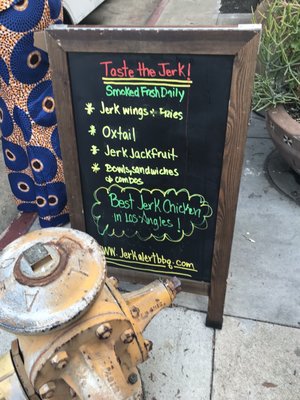 Taste the Jerk!
Smoked Fresh Daily
* Jerk wings + Fries
* Oxtail
* Jerk Jackfruit
* Bowls, sandwiches
& combos
Best Jerk Chicken
in Los Angeles!
www.Jerkalertbbq.com